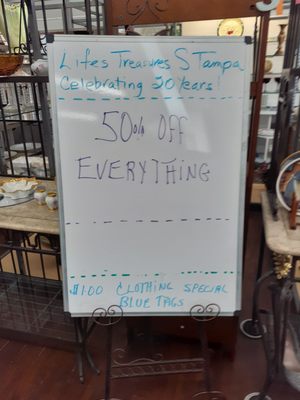 Lifes Treasures S Tampa
Celebrating 20 Years!
50% OFF
EVERYTHING
$1.00 CLOTHING SPECIAL
BLUE TAGS